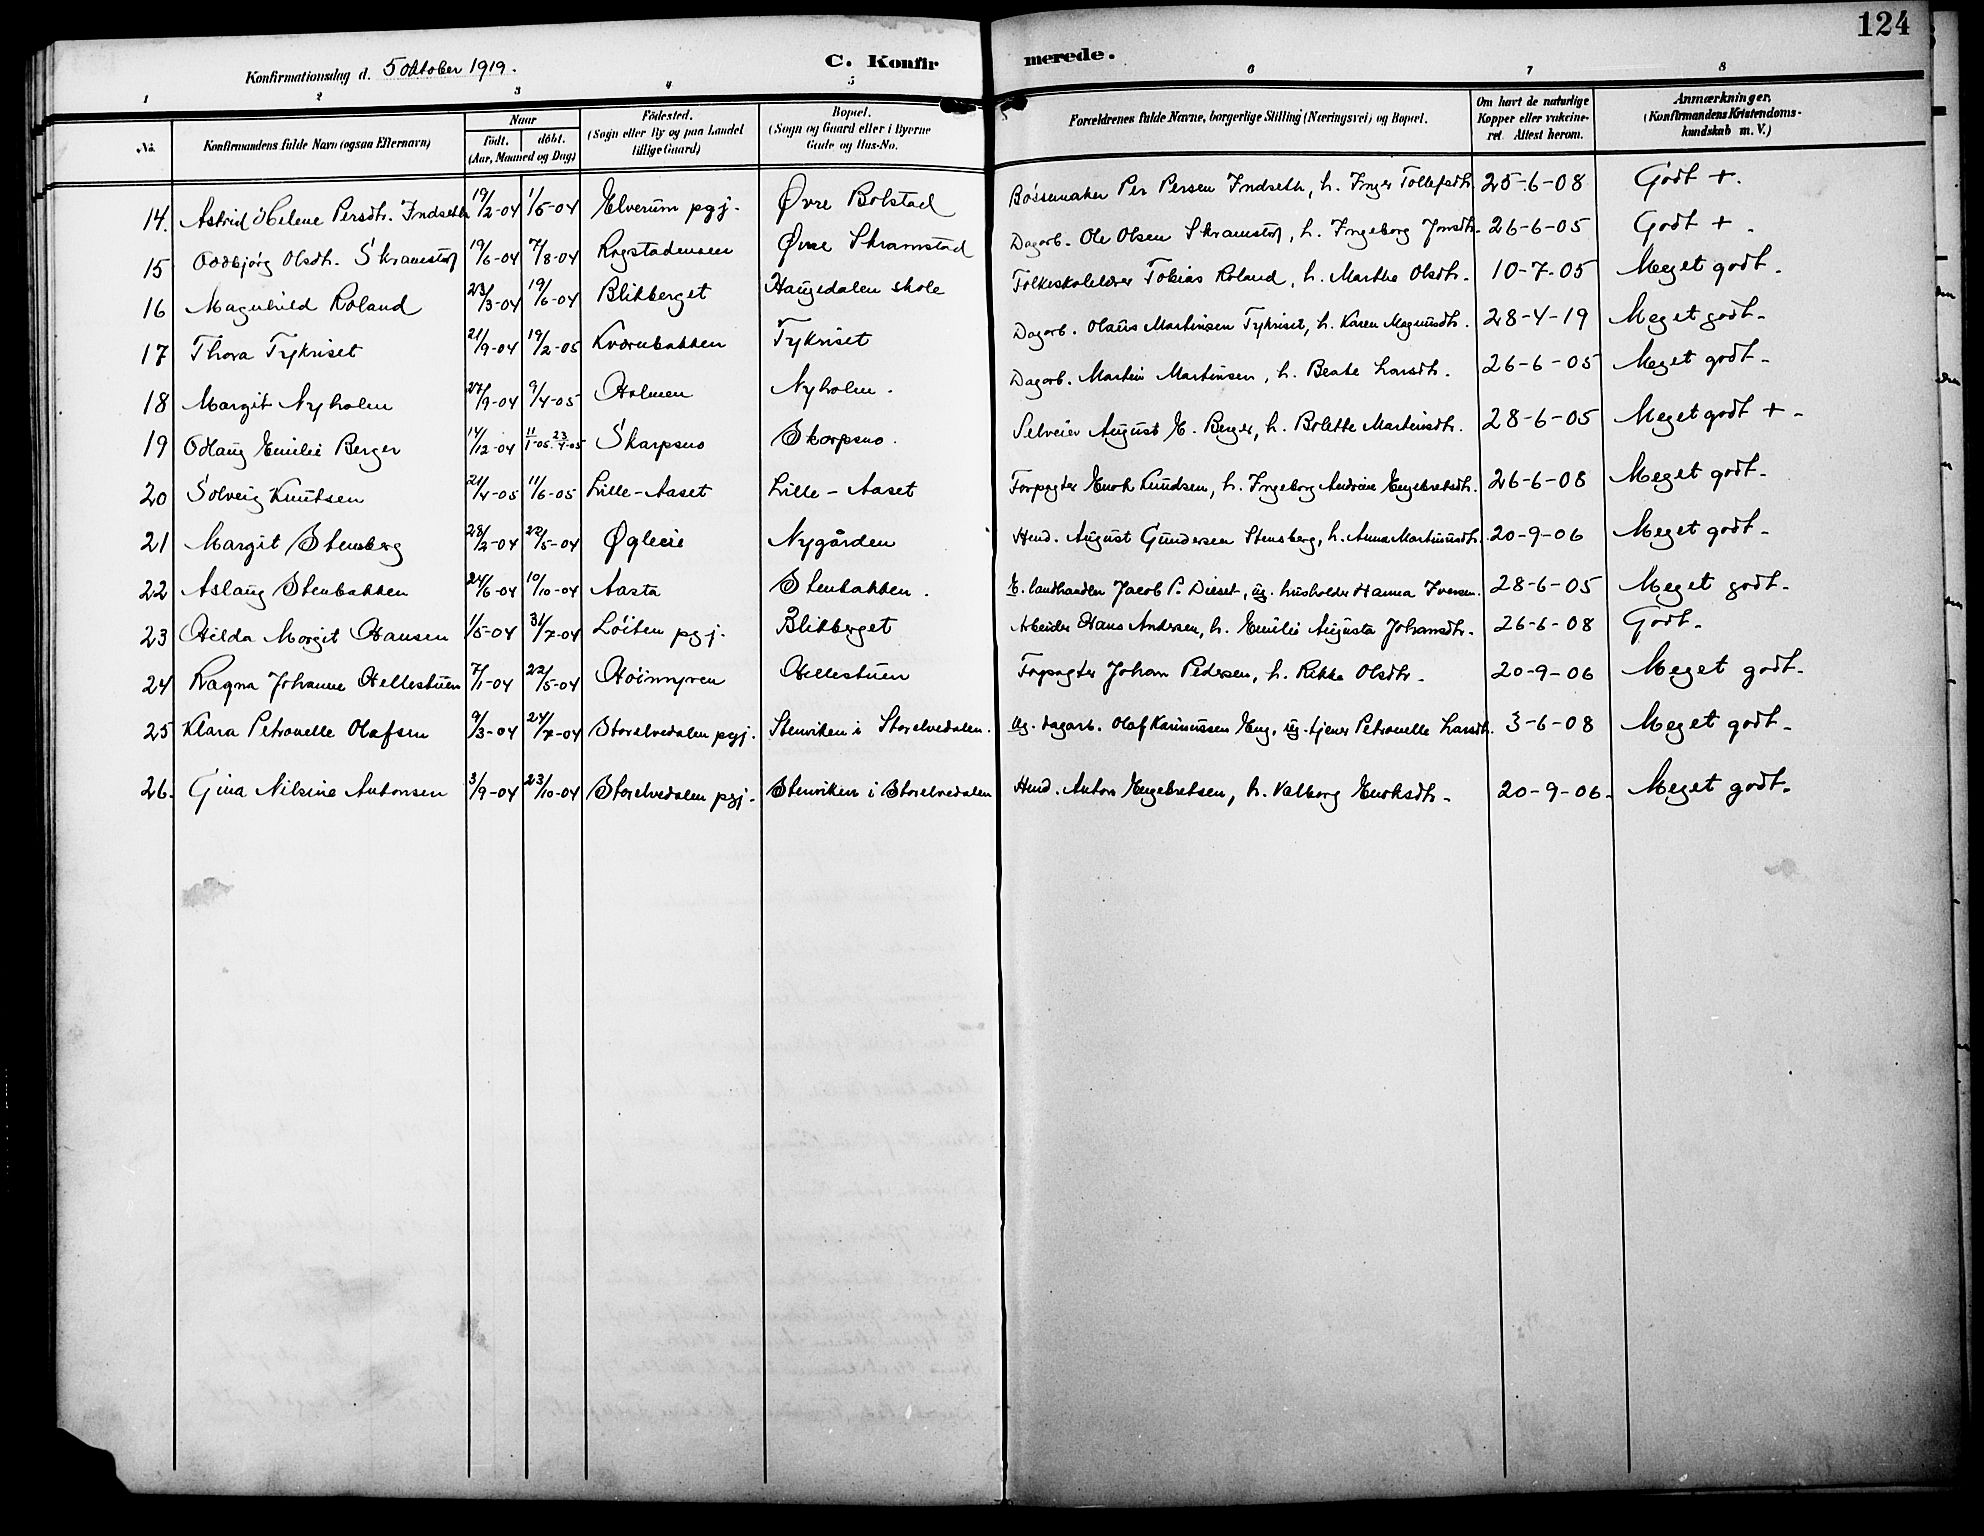 124
Konfirmationsdag d. 5 oktober 1919.
C. Konfirmerede.
1 2 3 4 5 6 7 8
No. Konfirmandens fulde Navn (ogsaa Efternavn) Naar födt. döbt. (Aar, Maaned og Dag) Födested. (Sogn eller By og paa Landet tillige Gaard) Bopæl. (Sogn og Gaard eller i Byerne Gade og Hus-No. Forældrenes fulde Navne, borgerlige Stilling (Næringsvei) og Bopæl. Om havt de naturlige Kopper eller vakcineret. Attest herom. Anmærkninger. (Konfirmandens Kristendomskundskab m. V.)
14. Astrid Helene Persdtr. Indseth 19/2-04 1/5-04 Elverum pgj. Øvre Bolstad Bøssemaker Per Persen Indseth, h. Inger Tollefsdtr. 25-6-08 Godt +.
15 Oddbjørg Olsdtr. Skramstad 19/6-04 7/8-04 Rogstadensen Øvre Skramstad Dagarb. Ole Olsen Skramstad, h. Ingeborg Jonsdtr. 26-6-05 Godt +.
16 Magnhild Roland 23/3-04 19/6-04 Blikberget Haugedalen skole Folkeskolelærer Tobias Roland, h. Marthe Olsdtr. 10-7-05 Meget godt.
17 Thora Tykriset 21/9-04 19/2-05 Kværnbakken Tykriset Dagarb. Olaus Martinsen Tykriset, h. Karen Magnusdtr. 28-4-19 Meget godt.
18 Margit Nyholm 27/9-04 9/4-05 Holmen Nyholm. Dagarb. Martin Martinsen, h. Beate Larsdtr. 26-6-05 Meget godt.
19 Odlaug Emilie Berger 14/12-04 11/1-05. 23/4-05 Skarpsno Skarpsno. Selveier August E. Berger, h. Bolette Martinsdtr. 28-6-05 Meget godt +.
20 Solveig Knutsen 21/4-05 11/6-05 Lille-Aaset Lille-Aaset Forpagter Enok Knudsen, h. Ingeborg Andrine Engebretsdtr. 26-6-08 Meget godt.
21 Margit Stensberg 28/2-04 22/5-04 Øgleie Nygården Hmd. August Gundersen Stensberg, h. Anna Martinusdtr. 20-9-06 Meget godt.
22 Aslaug Stenbakken 24/6-04 10/10-04 Aasta Stenbakken. E. landhandler Jacob P. Dieset, ug. husholder Hanna Iversen. 28-6-05 Meget godt.
23 Hilda Margit Hansen 1/5-04 31/7-04 Løiten pgj. Blikberget Arbeider Hans Andersen, h. Emilie Augusta Johansdtr. 26-6-08 Godt.
24 Ragna Johanne Hellestuen 7/1-04 22/5-04 Hoinmyren Hellestuen Forpagter Johan Pedersen, h. Rikka Olsdtr. 20-9-06 Meget godt.
25 Klara Petronelle Olafsen 9/3-04 24/7-04 Storelvedalen pgj. Stenviken i Storelvedalen. Ug. dagarb. Olaf Rasmussen Eng, ug. tjener Petronelle Larsdtr. 3-6-08 Meget godt.
26. Gina Nilsine Antonsen 3/9-04 23/10-04 Storelvedalen pgj. Stenviken i Storelvedalen Hmd. Anton Engebretsen, h. Valborg Enoksdtr. 20-9-06. Meget godt.